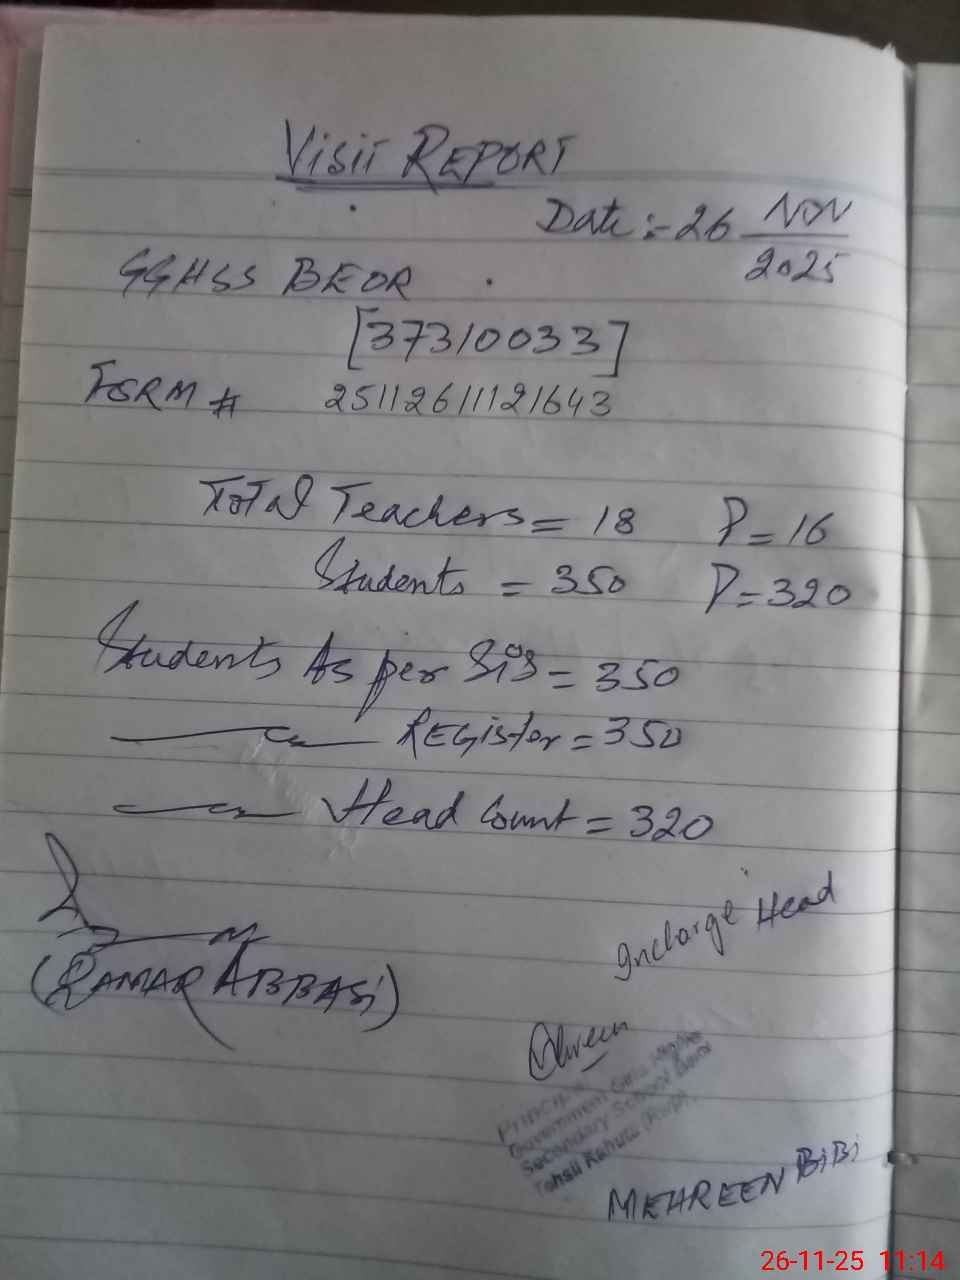 VISIT REPORT
Date:- 26 NOV
2025
GGHSS BEOR
[37310033]
FORM # 25112611121643
Total Teachers = 18 P = 16
Students = 350 P = 320
Students As per SiS = 350
REGister = 350
Head Count = 320
Incharge Head
(QAMAR ABBASi)
Principal
Government Girls Higher
Secondary School Beor
Tehsil Kahuta (Rwp)
MEHREEN BiBi
26-11-25 11:14